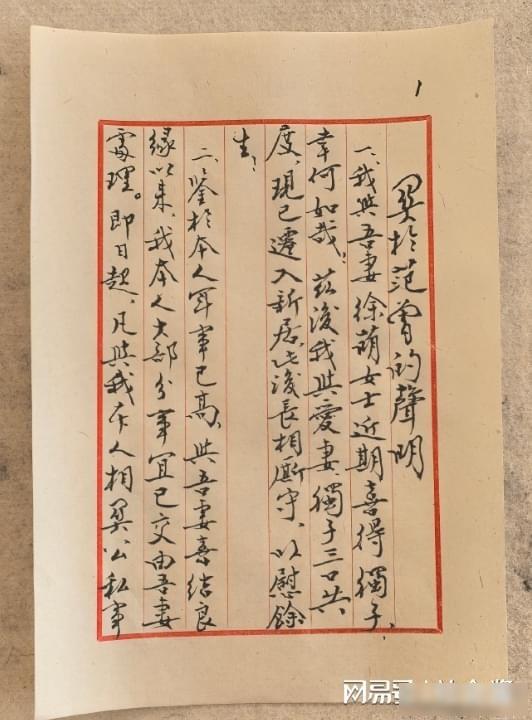 1
関於范曾的聲明
一、我與吾妻徐萌女士近期喜得獨子，
幸何如哉，茲後我與愛妻獨子三口共
度，現已遷入新居，此後長相廝守，以慰餘
生；
二、鉴於本人年事已高，與吾妻喜结良
緣以来，我本人大部分事宜已交由吾妻
處理。即日起，凡與我本人相関公私事
网易号